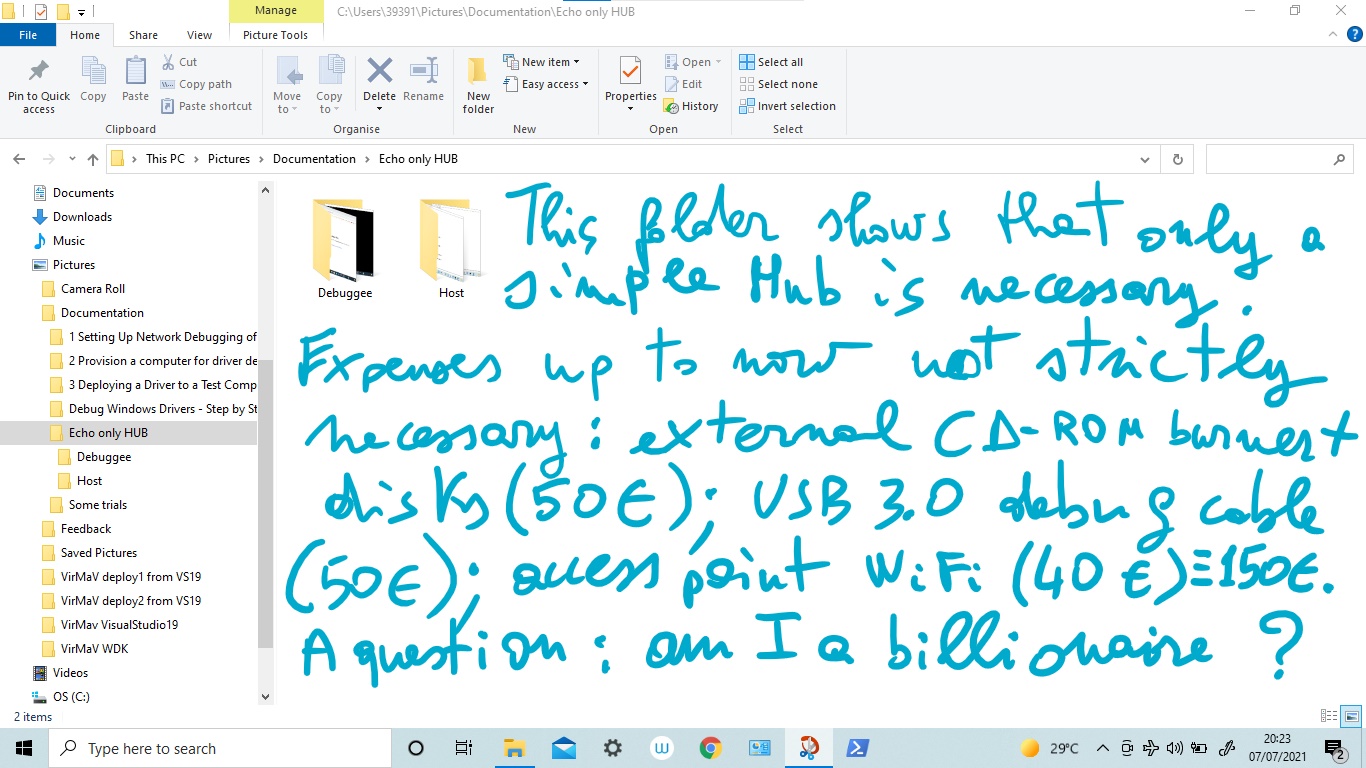 Manage
C:\Users\39391\Pictures\Documentation\Echo only HUB
File Home Share View Picture Tools
Pin to Quick access
Copy
Paste
Cut
Copy path
Paste shortcut
Clipboard
Move to
Copy to
Delete
Rename
Organise
New folder
New item
Easy access
New
Properties
Open
Edit
History
Open
Select all
Select none
Invert selection
Select
This PC > Pictures > Documentation > Echo only HUB
Documents
Downloads
Music
Pictures
Camera Roll
Documentation
1 Setting Up Network Debugging of
2 Provision a computer for driver de
3 Deploying a Driver to a Test Comp
Debug Windows Drivers - Step by St
Echo only HUB
Debuggee
Host
Some trials
Feedback
Saved Pictures
VirMaV deploy1 from VS19
VirMaV deploy2 from VS19
VirMav VisualStudio19
VirMaV WDK
Videos
OS (C:)
Debuggee
Host
This folder shows that only a
simple Hub is necessary.
Expenses up to now not strictly
necessary: external CD-ROM burner+
disks (50€); USB 3.0 debug cable
(50€); access point WiFi (40€)≡150€.
A question: am I a billionaire?
2 items
Type here to search
29°C
20:23
07/07/2021
2